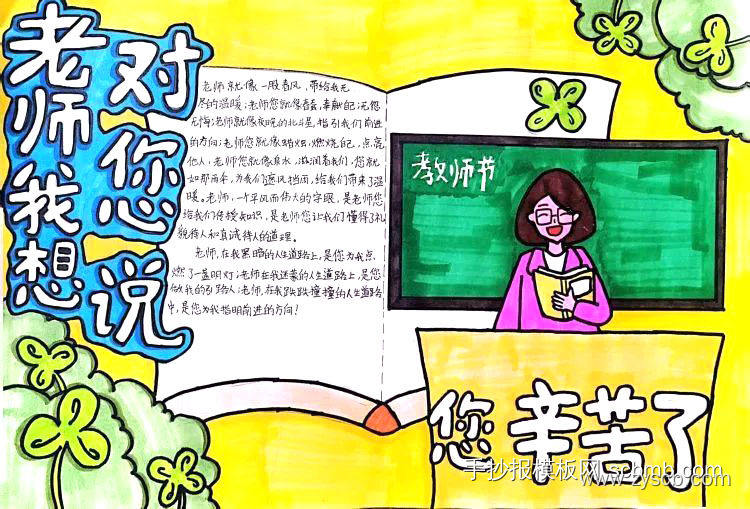 老师我想
对您说
老师就像一股春风，带给我无
尽的温暖；老师您就像春蚕，奉献自己，无怨
无悔；老师就像夜晚的北斗星，指引我们前进
的方向；老师您就像蜡烛，燃烧自己，点亮
他人；老师您就像泉水，滋润着我们，您就
如那雨伞，为我们遮风挡雨，给我们带来了温
暖。老师，一个平凡而伟大的字眼，是老师您
给我们传授知识，是老师您让我们懂得了礼
貌待人和真诚待人的道理。
老师，在我黑暗的人生道路上，是您为我点
燃了一盏明灯；老师在我迷茫的人生道路上，是您
做我的引路人；老师，在我跌跌撞撞的人生道路
中，是您为我指明前进的方向！
教师节
您辛苦了
手抄报模板网 scbmb.com
www.zyscb.com